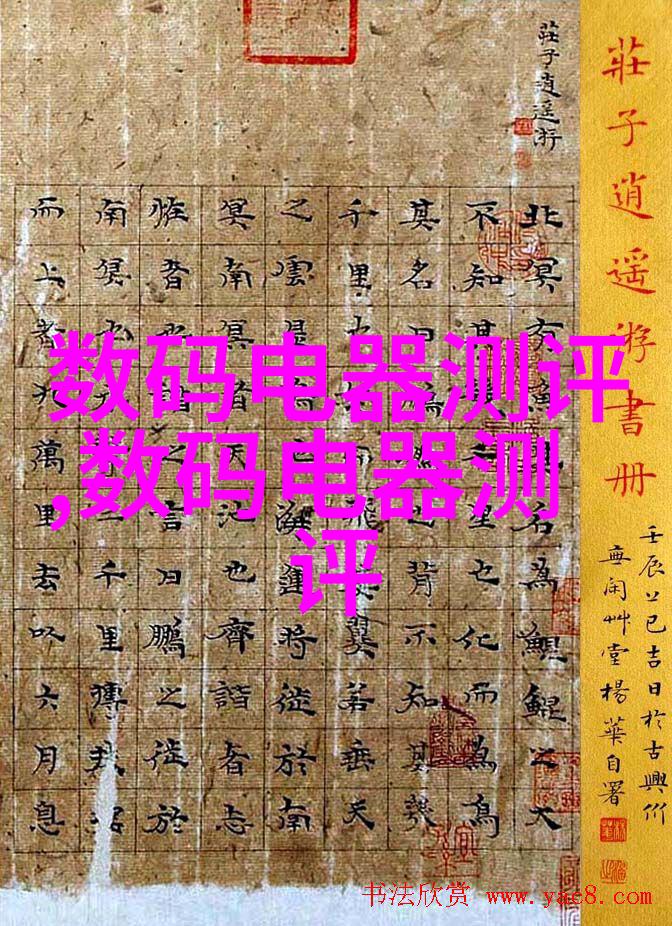 莊子逍遥游書册
壬辰上巳吉日於古興
無闲艸堂楊華自署
莊子逍遥游
北冥有魚其名為鯤鯤之大
不知其里也化而為鳥
其名曰鵬之背不知其幾
千里也而飛其翼若垂天
之雲是鳥海運將徙於南
冥南冥者天池也齊諧者志
怪者也諧之言曰鵬之徙於
南冥也水三千里摶扶搖
而上者九萬里去以六月息
数码电器测评
,数码电器测
评
书法欣赏 www.yac8.com